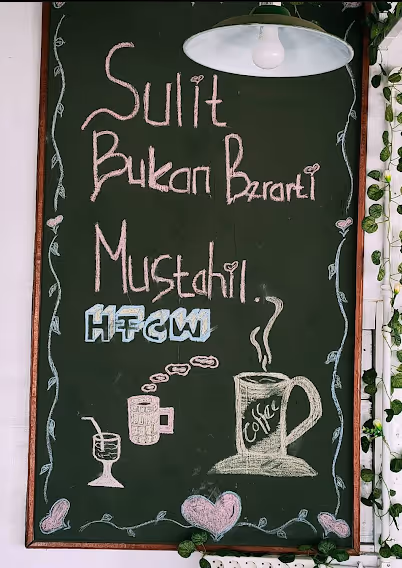 Sulit
Bukan Berarti
Mustahil.
HTCW
Coffee